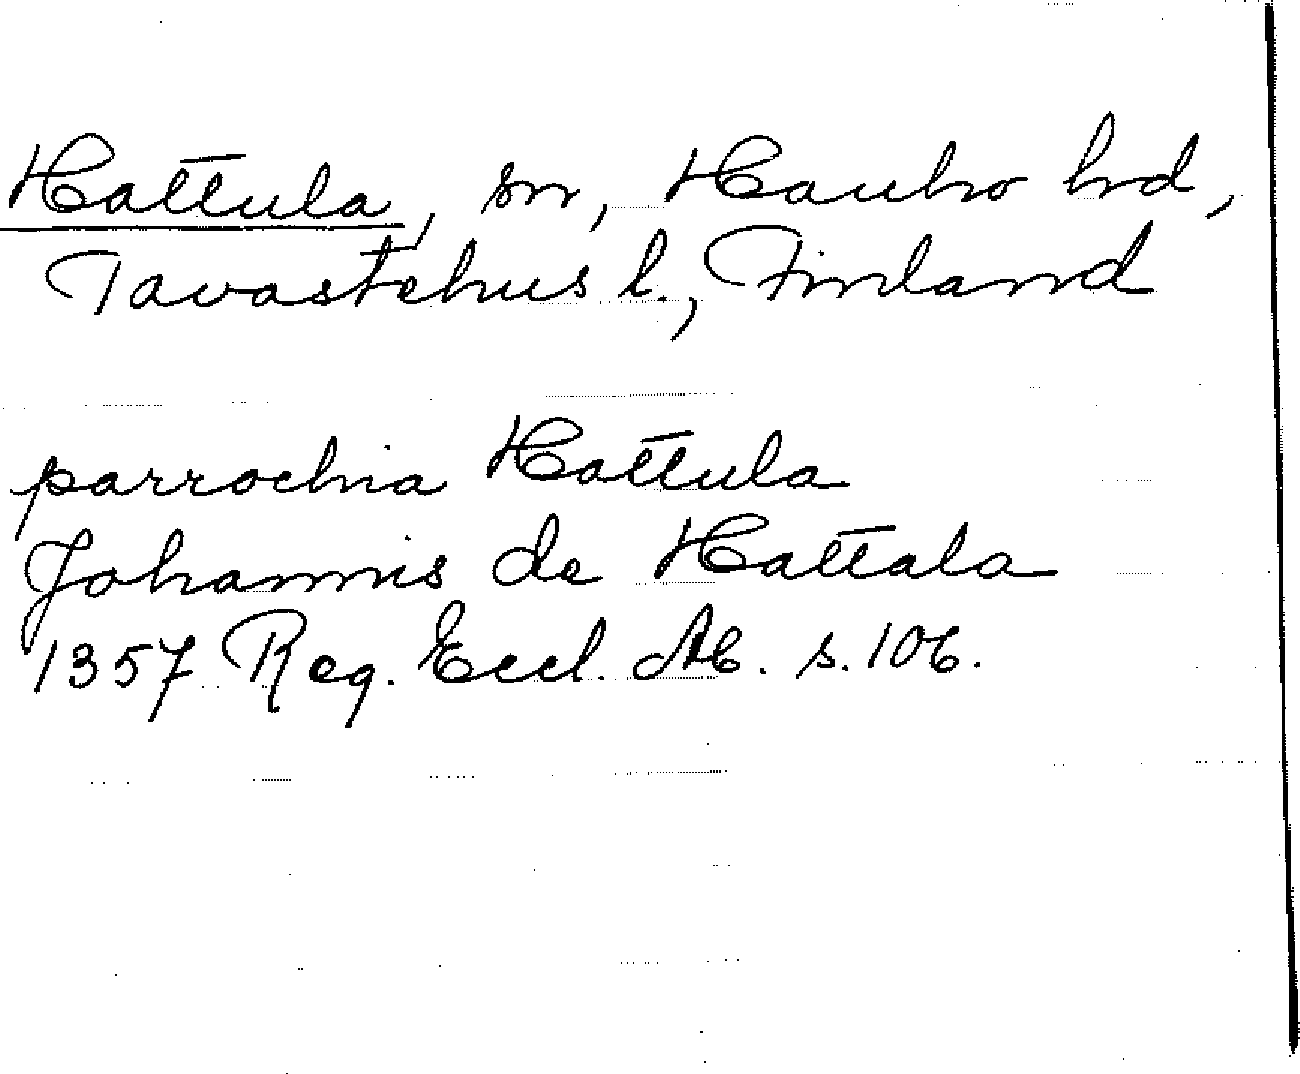 Hattula, sn, Hauho hd,
Tavastehus l., Finland
parrochia Hattula
Johannis de Hattala
1357 Reg. Eccl. Ab. s. 106.